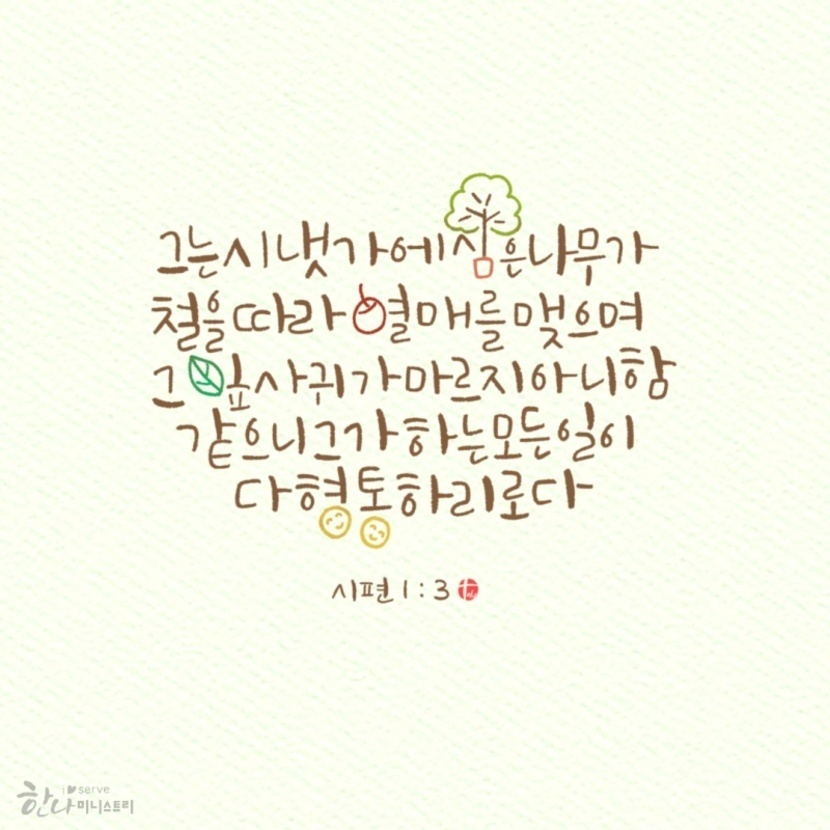 그는 시냇가에 심은 나무가
철을 따라 열매를 맺으며
그 잎사귀가 마르지 아니함
같으니 그가 하는 모든 일이
다 형통하리로다
시편 1 : 3
i serve
한나미니스트리